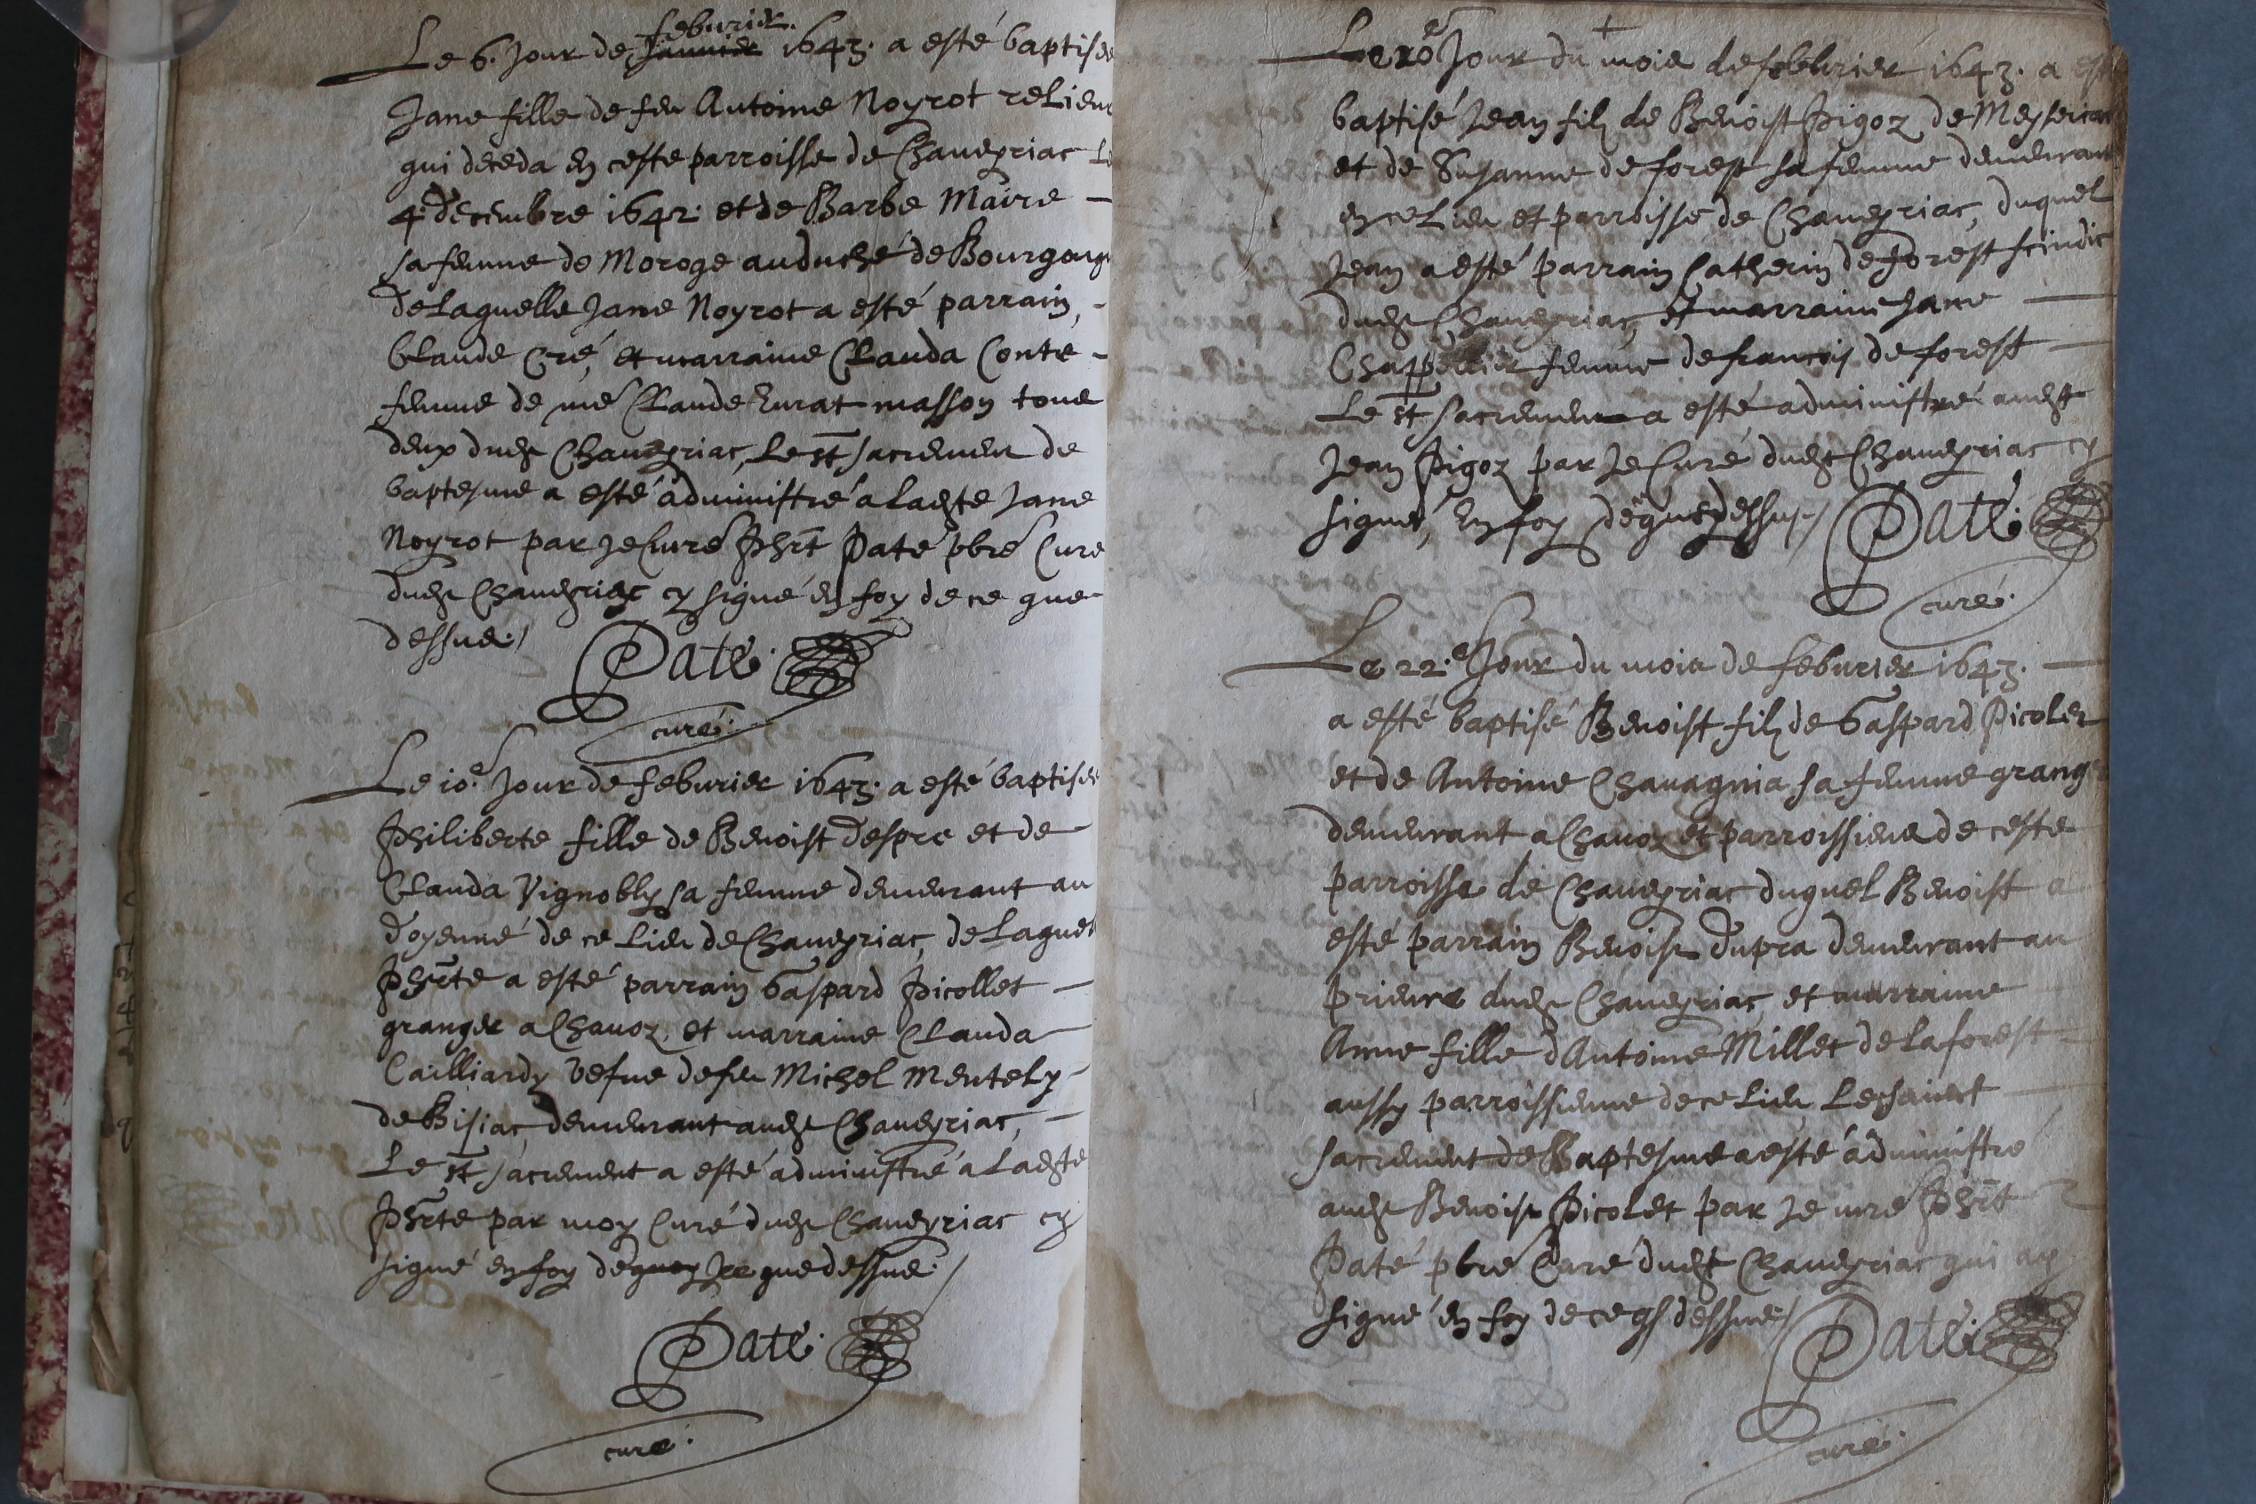 Le 6. Jour de Januier feburier. 1643. a esté baptisée
Jane fille de feu Antoine Noyrot relieur
qui deceda en ceste parroisse de Chaueyriac Le
4. decembre 1642. et de Barbe Maire
sa femme de Moroge au duché de Bourgongne
de laquelle Jane Noyrot a esté parrain,
Claude Cré, et marraine Clauda Conte
femme de me Claude Eurat masson tous
deux dudt Chaueyriac, Le st sacrement de
baptesme a esté administré a ladte Jane
Noyrot par Je Curé Phrt Paté pbre Curé
dudt Chaueyriac cy signé en foy de ce que
dessus./ Paté.
curé.
Le 10.e Jour de feburier 1643. a esté baptisée
Philiberte fille de Benoist Despre et de
Clauda Vignobly sa femme demeurant au
doyenné de ce Lieu de Chaueyriac, de Laquel
Phrte a esté parrain Gaspard Picollet
granger a Chauoz, et marraine Clauda
Cailliardy vefue de feu Michel Mentely
de Bisiac, demeurant audt Chaueyriac,
Le st sacrement a esté administré a Ladte
Phrte par moy Curé dudt Chaueyriac cy
signé en foy de quoy Je ce que dessus./
Paté.
curé.
Le 10e Jour du mois de febburier 1643. a est
baptisé Jean filz de Benoist Pigoz de Meyseriat
et de Susanne de forest sa femme demeurant
en ce Lieu et parroisse de Chaueyriac, duquel
Jean a esté parrain Catherin de forest scindic
dudt Chaueyriac, et marraine Jane
Chappellier femme de francois de forest
Le st sacrement a esté administré audt
Jean Pigoz par Je Curé dudt Chaueyriac cy
signé, En foy de que dessus./ Paté.
curé.
Le 22.e Jour du mois de feburier 1643.
a esté baptisé Benoist filz de Gaspard Picolet
et de Antoine Chauagnia sa femme granger
demeurant a Chauoz et parroissiens de ceste
parroisse de Chaueyriac duquel Benoist a
esté parrain Benoist Dupra demeurant au
prieuré dudt Chaueyriac, et marraine
Anne fille d'Antoine Millet de Laforest
aussy parroissienne de ce Lieu Le sainct
sacrement de Baptesme a esté administré
audt Benoist Picolet par Je curé Phrt
Paté pbre Curé dudt Chaueyriac qui ay
signé en foy de ce q dessus./ Paté.
curé.